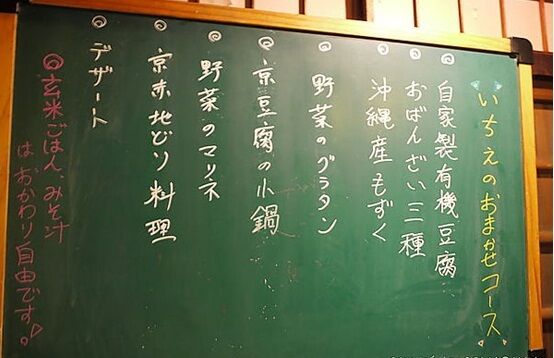 いちえのおまかせコース
◎自家製有機豆腐
◎おばんざい三種
◎沖縄産もずく
◎野菜のグラタン
◎京豆腐の小鍋
◎野菜のマリネ
◎京赤地どり料理
◎デザート
◎玄米ごはん、みそ汁
はおかわり自由です♪。